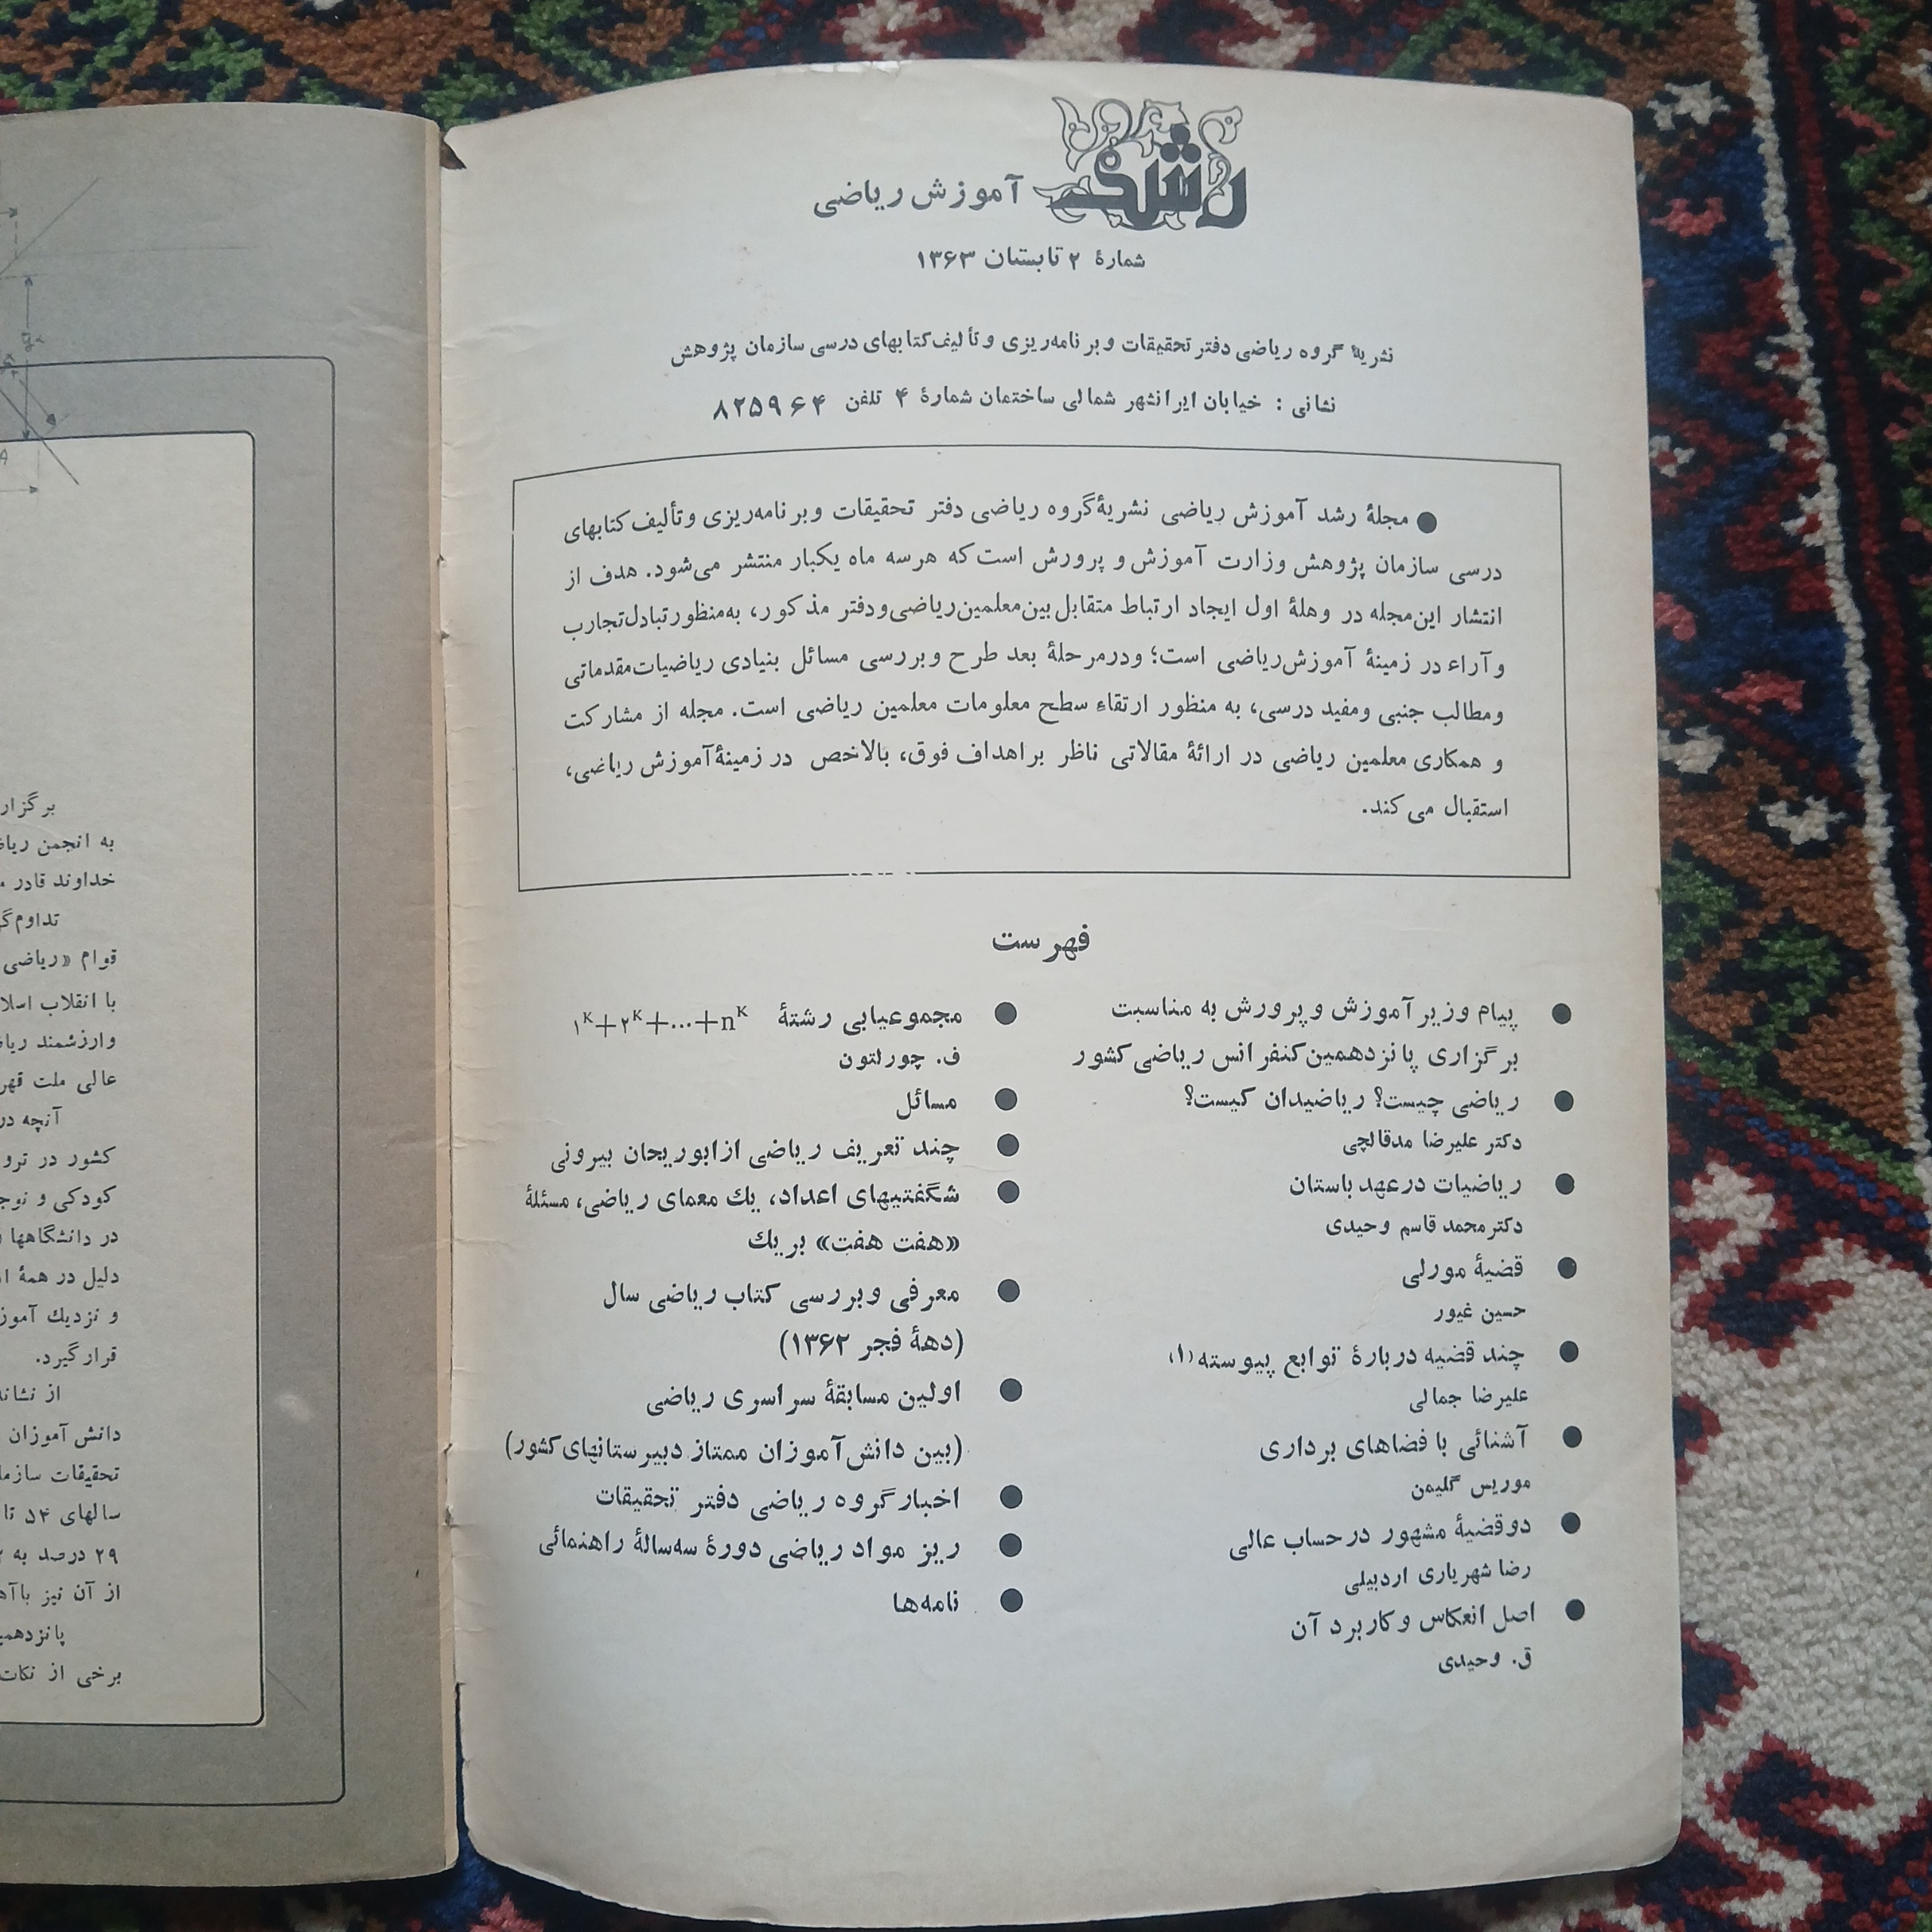 رشد آموزش ریاضی
شمارهٔ ۲ تابستان ۱۳۶۳
نشریهٔ گروه ریاضی دفتر تحقیقات و برنامه‌ریزی و تألیف کتابهای درسی سازمان پژوهش
نشانی : خیابان ایرانشهر شمالی ساختمان شمارهٔ ۴ تلفن ۸۲۵۹۶۴
● مجلهٔ رشد آموزش ریاضی نشریهٔ گروه ریاضی دفتر تحقیقات و برنامه‌ریزی و تألیف کتابهای
درسی سازمان پژوهش وزارت آموزش و پرورش است که هر سه ماه یکبار منتشر می‌شود. هدف از
انتشار این مجله در وهلهٔ اول ایجاد ارتباط متقابل بین معلمین ریاضی و دفتر مذکور، به‌منظور تبادل تجارب
و آراء در زمینهٔ آموزش ریاضی است؛ و در مرحلهٔ بعد طرح و بررسی مسائل بنیادی ریاضیات مقدماتی
و مطالب جنبی و مفید درسی، به منظور ارتقاء سطح معلومات معلمین ریاضی است. مجله از مشارکت
و همکاری معلمین ریاضی در ارائهٔ مقالاتی ناظر بر اهداف فوق، بالاخص در زمینهٔ آموزش ریاضی،
استقبال می‌کند.
فهرست
● پیام وزیر آموزش و پرورش به مناسبت
برگزاری پانزدهمین کنفرانس ریاضی کشور
● ریاضی چیست؟ ریاضیدان کیست؟
دکتر علیرضا مدقالچی
● ریاضیات در عهد باستان
دکتر محمد قاسم وحیدی
● قضیهٔ مورلی
حسین غیور
● چند قضیه دربارهٔ توابع پیوسته (۱)
علیرضا جمالی
● آشنائی با فضاهای برداری
موریس گلیمن
● دو قضیهٔ مشهور در حساب عالی
رضا شهریاری اردبیلی
● اصل انعکاس و کاربرد آن
ق. وحیدی
● مجموعیابی رشتهٔ ۱ᴷ+۲ᴷ+...+nᴷ
ف. چورلتون
● مسائل
● چند تعریف ریاضی از ابوریحان بیرونی
● شگفتیهای اعداد، یك معمای ریاضی، مسئلهٔ
«هفت هفت» بر یك
● معرفی و بررسی کتاب ریاضی سال
(دههٔ فجر ۱۳۶۲)
● اولین مسابقهٔ سراسری ریاضی
(بین دانش‌آموزان ممتاز دبیرستانهای کشور)
● اخبار گروه ریاضی دفتر تحقیقات
● ریز مواد ریاضی دورهٔ سه‌سالهٔ راهنمائی
● نامه‌ها
به انجمن
خداوند قادر
قوام «ریاضی
با انقلاب
وارزشمند
عالی ملت
آنچه
کشور در
کودکی و
در دانشگاهها
دلیل در همهٔ
و نزدیك
قرار گیرد.
از
دانش آموزان
تحقیقات
سالهای ۵۴ تا
۲۹ درصد به
از آن نیز
برخی از نکات